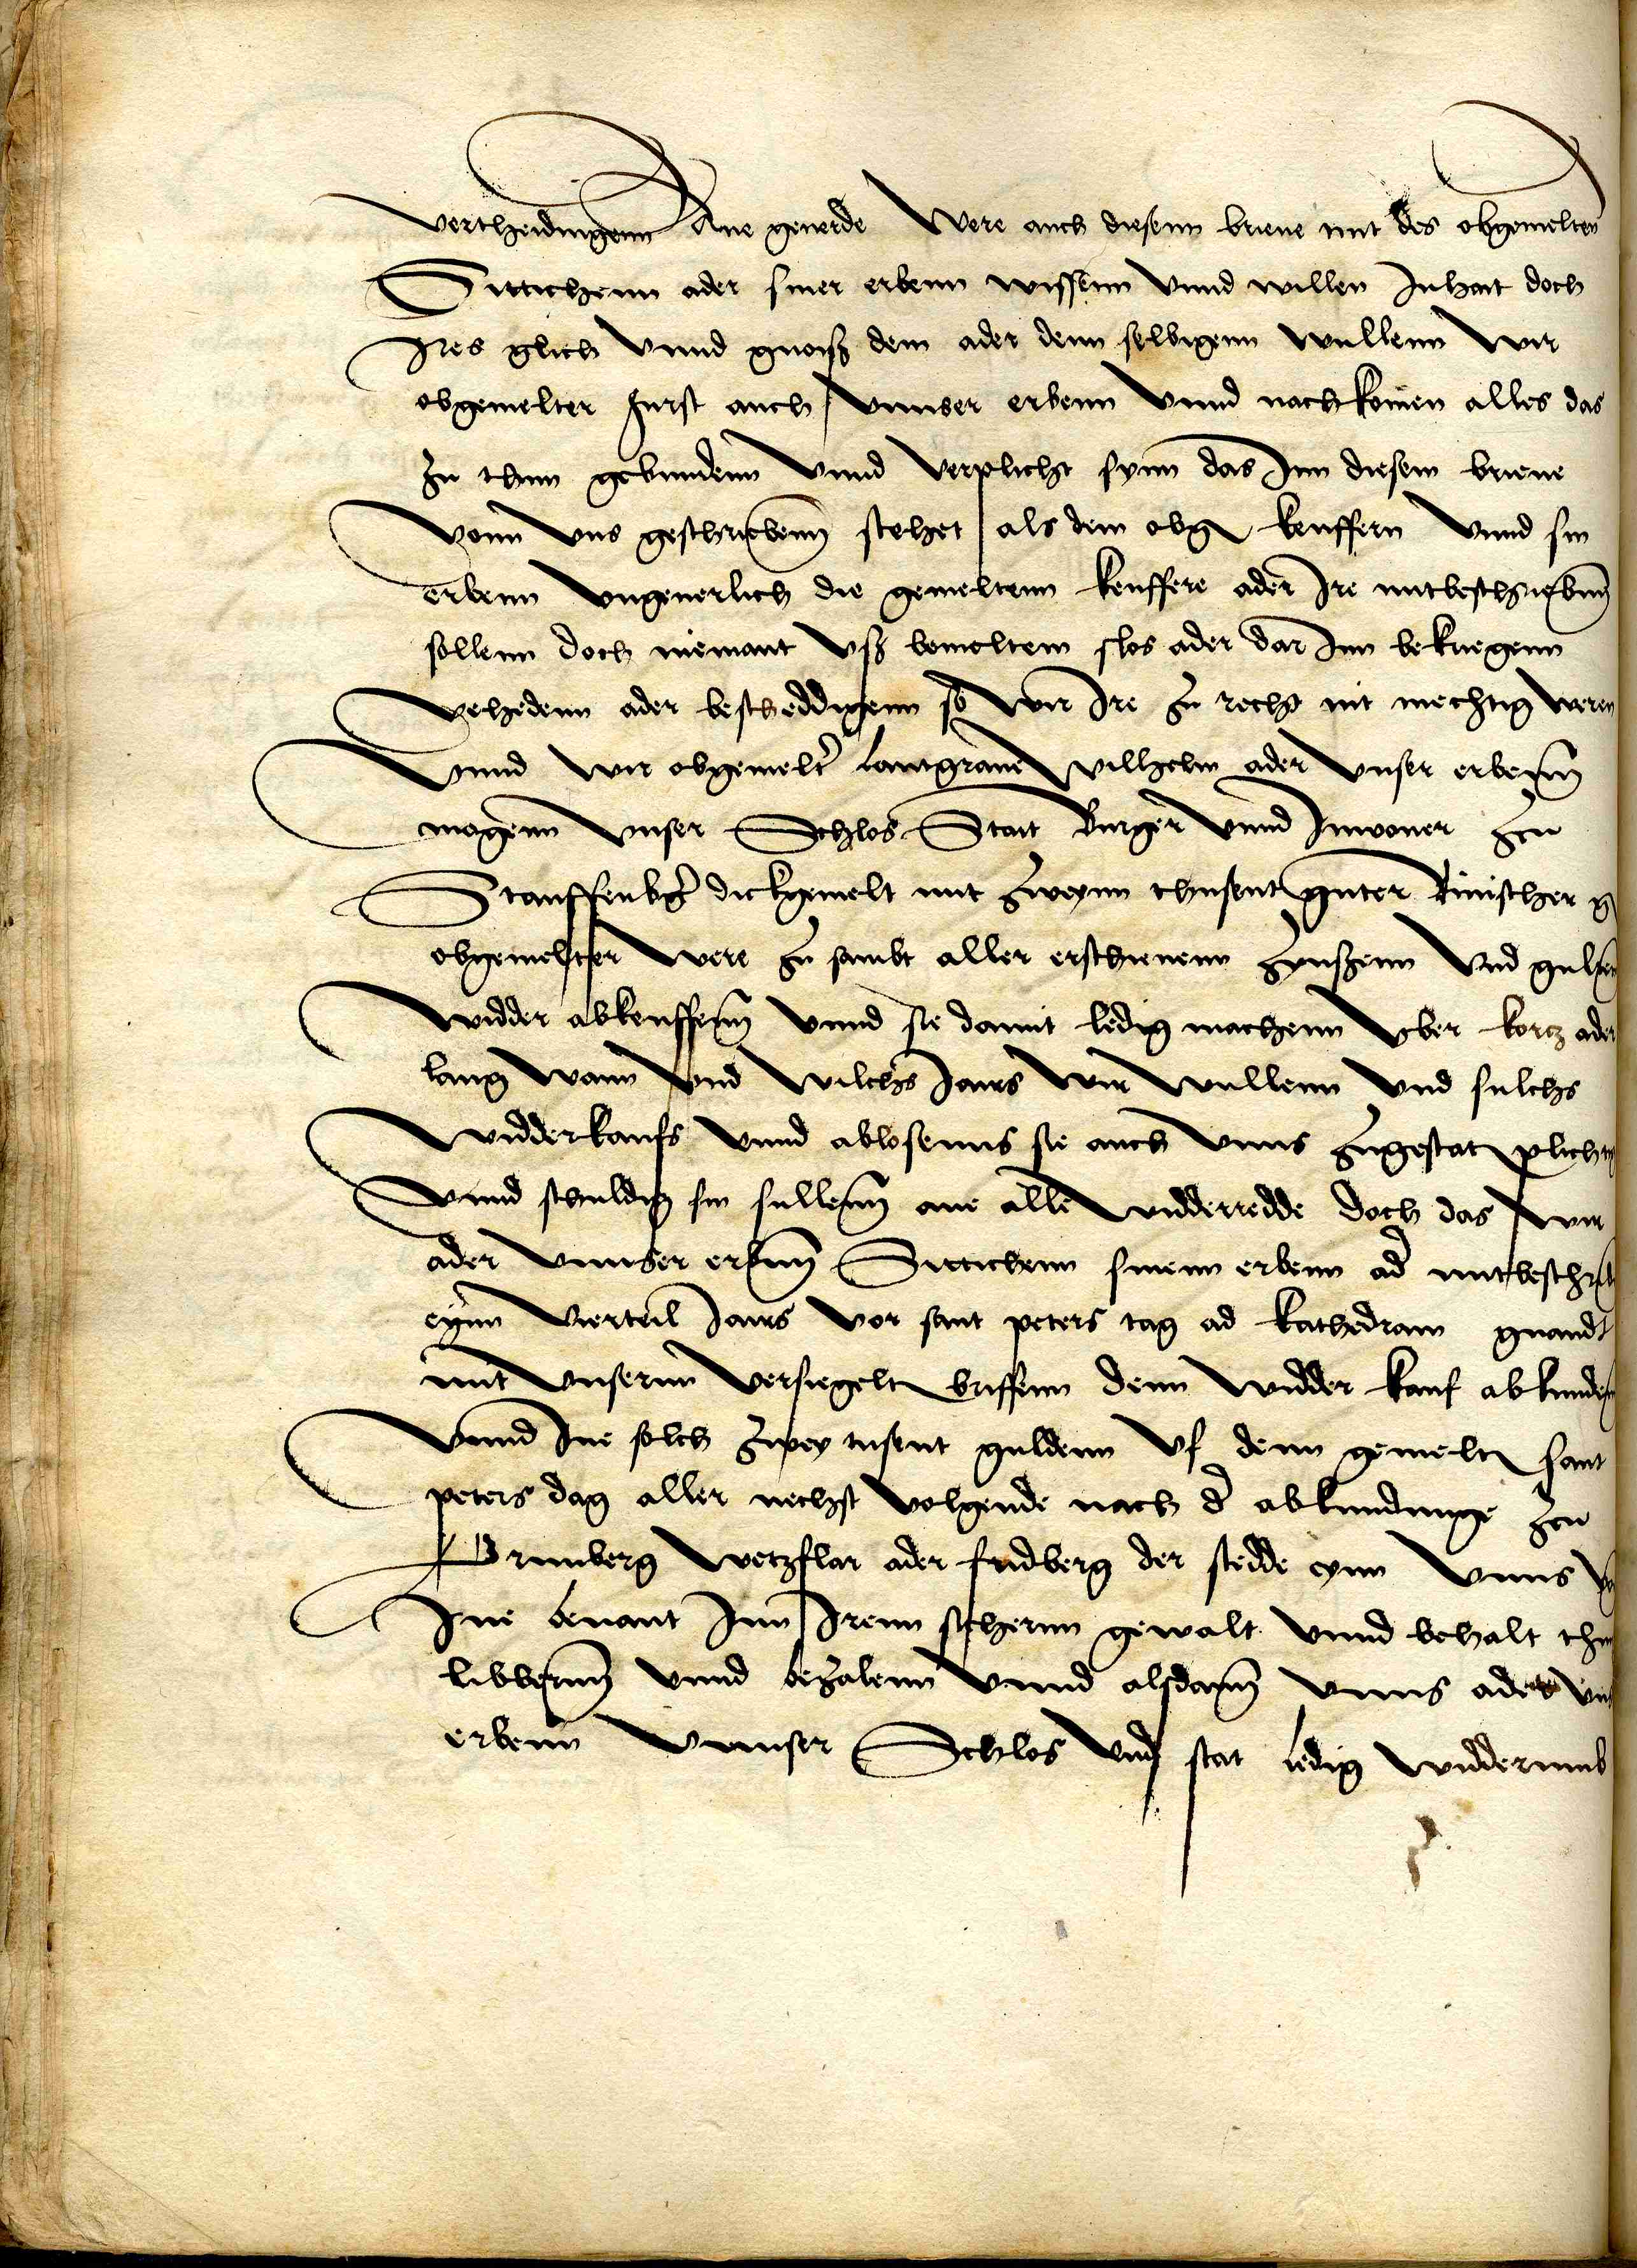 vertheidingenn Ane geuerde Were auch diesenn brieue mit des obgemelten
Sittichenn ader siner erbenn wissenn vnnd willen Inhait doch
Ires glich vnnd gnoiß dem ader denn selbigenn wullenn wir
obgemelter furst auch vnnser erbenn vnnd nachkomen alles das
zu thun gebundenn vnnd verplicht synn das Inn diesem brieue
vonn vns geschriebenn stehet als dem obg keuffern vnnd sin
erbenn vngeuerlich die gemeltenn keuffere ader Ire mitbeschriebenn
sollenn doch niemant vß bemeltem slos ader dar Inn bekriegenn
vehedenn ader bescheddigenn so wir Ire zu recht nit mechtig weren
Vnnd wir obgemelter lantgraue Wilhelm ader vnser erbenn
mogenn vnser Schlos Stait Burger vnnd Inwoner zcu
Stauffenbg dickgemelt mit zweynn thusent guter Rinischer g
obgemelter were zu sambt aller erschienenn zynßenn vnd gulten
widder abkeuffenn vnnd sie damit ledig machenn vber kortz ader
lang wann vnd wilchs Jairs wir wullenn vnd sulchs
widderkaufs vnnd ablosenns sie auch vnns zugestat plichtig
vnnd schuldig sin sullenn ane alle widderredde doch das wir
ader vnnser erbenn Sittichenn sinenn erbenn ader mitbeschrib
eynn vierteil Jairs vor sant peters tag ad kathedram gnandt
mit vnsernn versiegelt briffenn denn widder kauf abkunden
vnnd Ine solch zwey tusent guldenn vf denn gemelt sant
peters dag aller nechst volgende nach der abkundunge zcu
Grunberg wetzflar ader fridberg der stedde eynn vnns
Ine benant Inn Irenn sichernn gewalt vnnd behalt thun
libbernn vnnd bezalenn vnnd alsdann vnns ader vns
erbenn vnnser Schlos vnd stat ledig widderumb